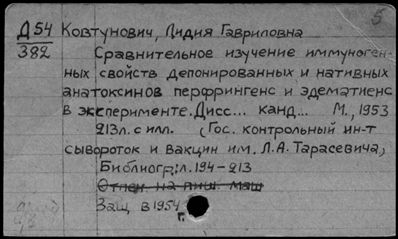 5
Д54 Ковтунович, Лидия Гавриловна
382
Сравнительное изучение иммуноген-
ных свойств депонированных и нативных
анатоксинов перфрингенс и эдематиенс
в эксперименте. Дисс... канд... М., 1953
213л. с илл. (Гос. контрольный ин-т
сывороток и вакцин им. Л.А. Тарасевича)
Библиогр: л. 194-213
Отпеч. на пиш. маш
Защ в 1954 г.